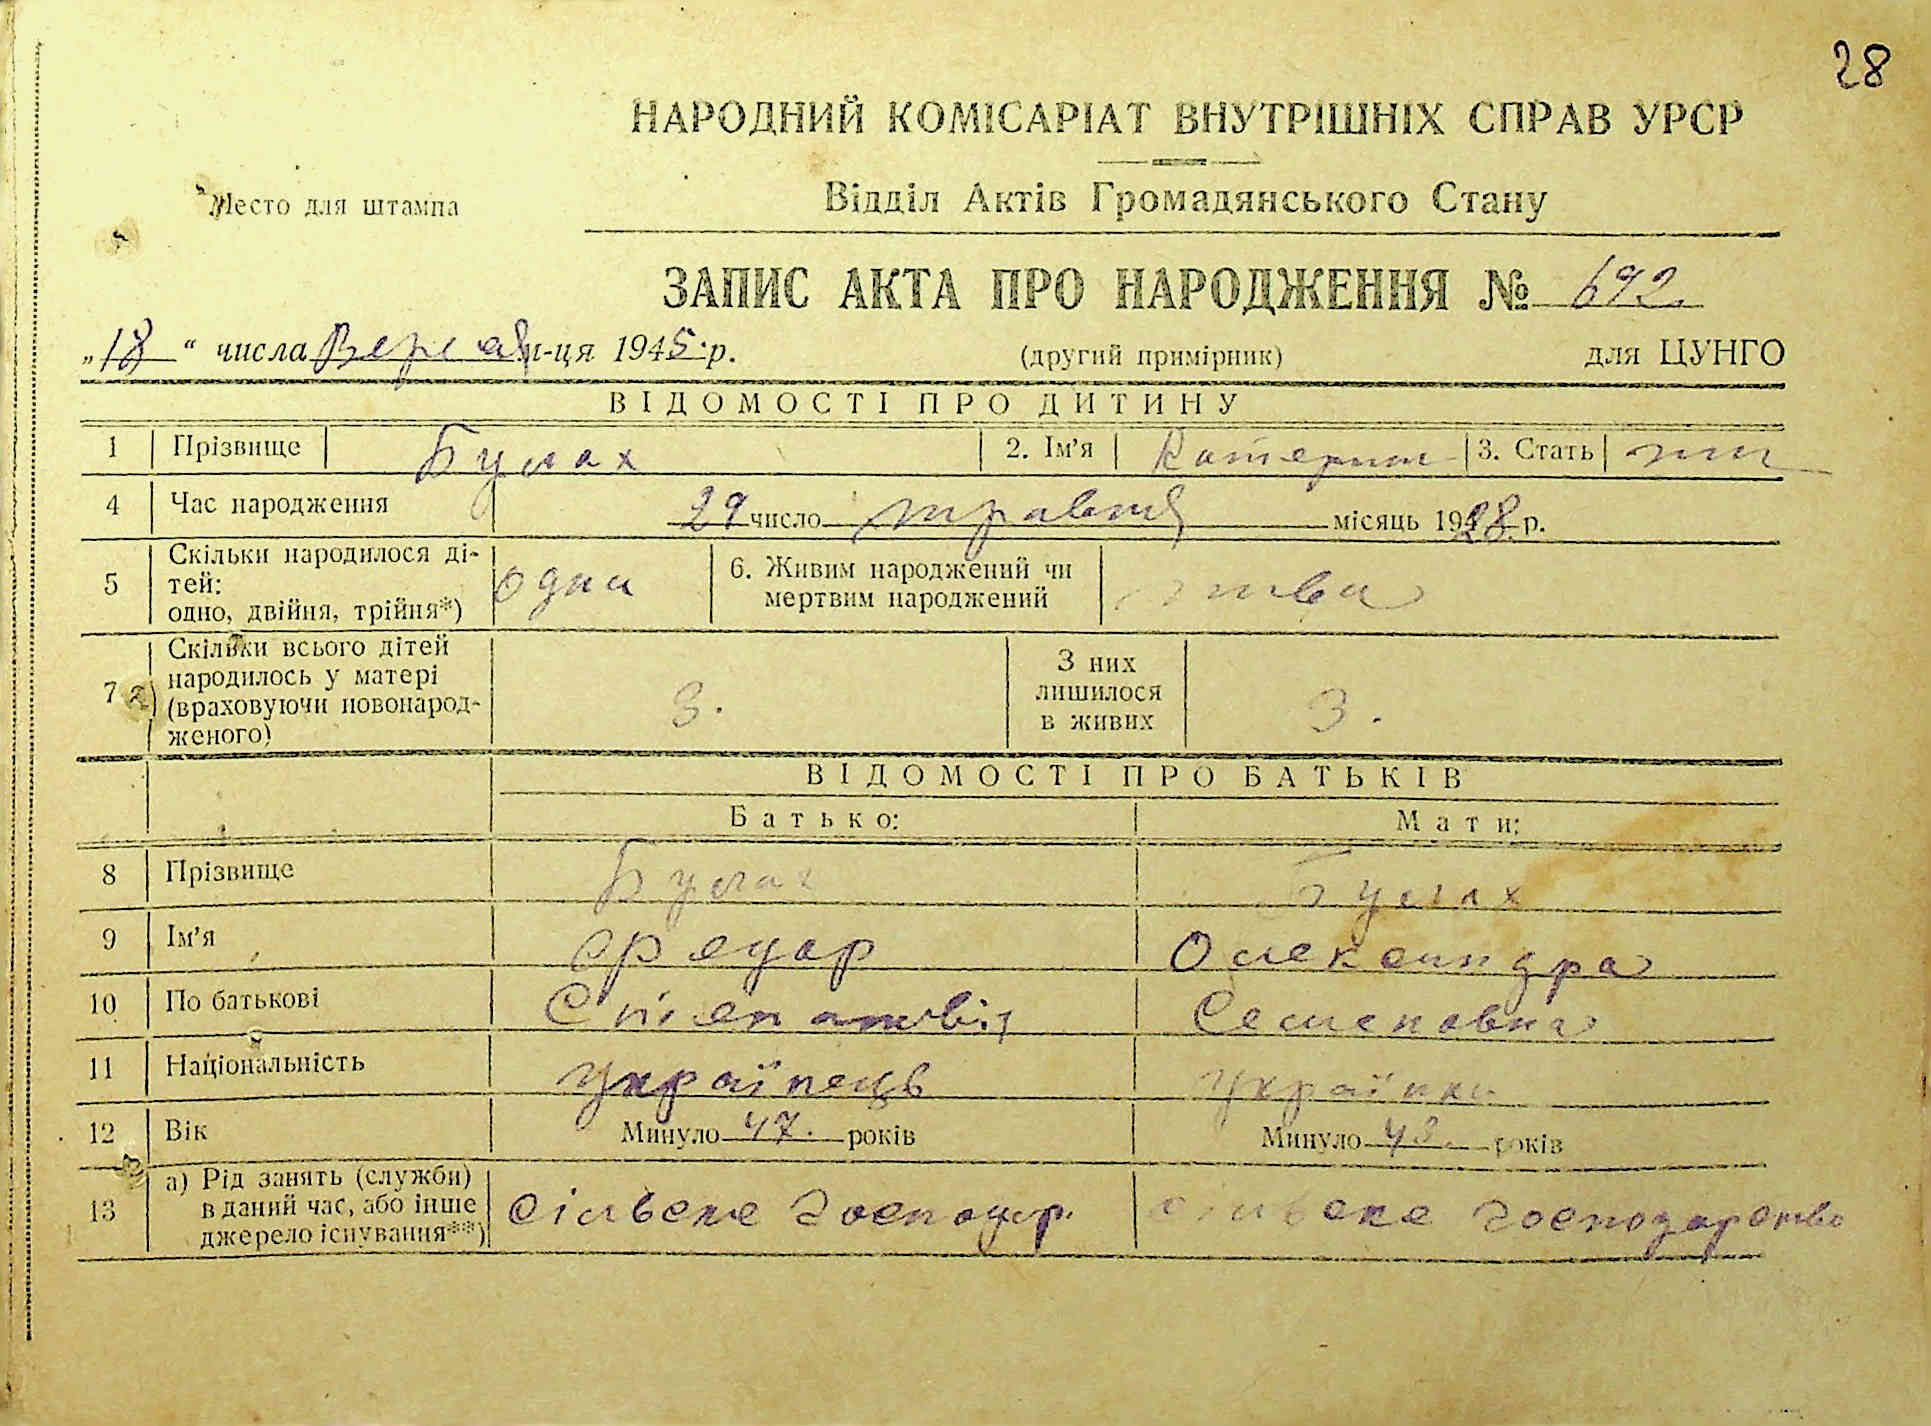 28
НАРОДНИЙ КОМІСАРІАТ ВНУТРІШНІХ СПРАВ УРСР
Место для штампа
Відділ Актів Громадянського Стану
ЗАПИС АКТА ПРО НАРОДЖЕННЯ № 692.
„18“ числа Вересня м-ця 1945.р. (другий примірник) для ЦУНГО
ВІДОМОСТІ ПРО ДИТИНУ
1 Прізвище Булах 2. Ім’я Катерина 3. Стать жін
4 Час народження 29 число травня місяць 1928 р.
5 Скільки народилося ді-
тей:
одно, двійня, трійня*) одна 6. Живим народжений чи
мертвим народжений
7 Скільки всього дітей
народилось у матері
(враховуючи новонарод-
женого) 3. З них
лишилося
в живих 3.
ВІДОМОСТІ ПРО БАТЬКІВ
Батько: Мати:
8 Прізвище Булах Булах
9 Ім’я Федар Олександра
10 По батькові Степанович Семеновна
11 Національність Українець Українка
12 Вік Минуло 47. років Минуло 43. років
13 а) Рід занять (служби)
в даний час, або інше
джерело існування**) сільске господар. сільске господарство